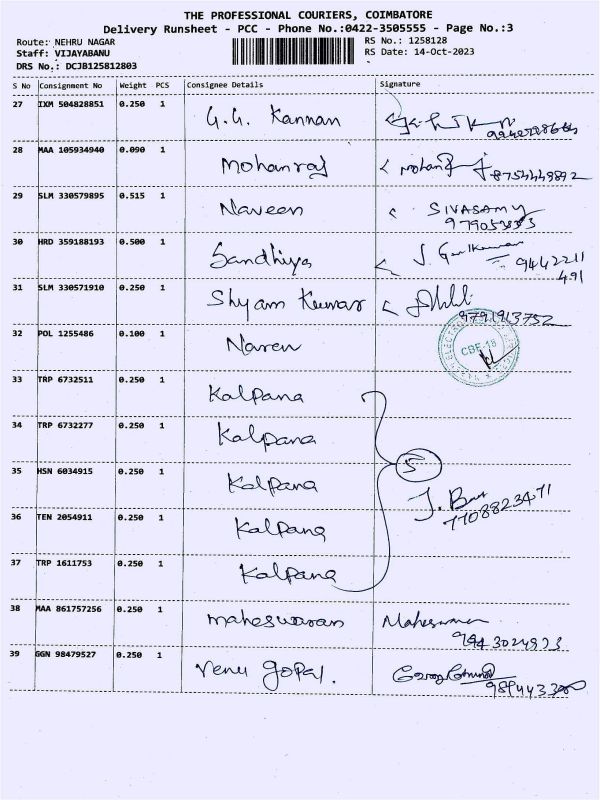 THE PROFESSIONAL COURIERS, COIMBATORE
Delivery Runsheet - PCC - Phone No.:0422-3505555 - Page No.:3
Route: NEHRU NAGAR
RS No.: 1258128
Staff: VIJAYABANU
RS Date: 14-Oct-2023
DRS No.: DCJB125812803
S No Consignment No Weight PCS Consignee Details Signature
27 IXM 504828851 0.250 1 G.G. Kannan
28 MAA 105934940 0.090 1 Mohanraj Mohan 8754449892
29 SLM 330579895 0.515 1 Naveen SIVASAMY
30 HRD 359188193 0.500 1 Sandhiya
9442211
491
31 SLM 330571910 0.250 1 Shyam Kumar
9791913752
32 POL 1255486 0.100 1 Naren CBE-18
33 TRP 6732511 0.250 1 Kalpana
34 TRP 6732277 0.250 1 Kalpana
35 HSN 6034915 0.250 1 Kalpana 5
36 TEN 2054911 0.250 1 Kalpana
7708823471
37 TRP 1611753 0.250 1 Kalpana
38 MAA 861757256 0.250 1 maheswaran
39 GGN 98479527 0.250 1 Venu gopal.